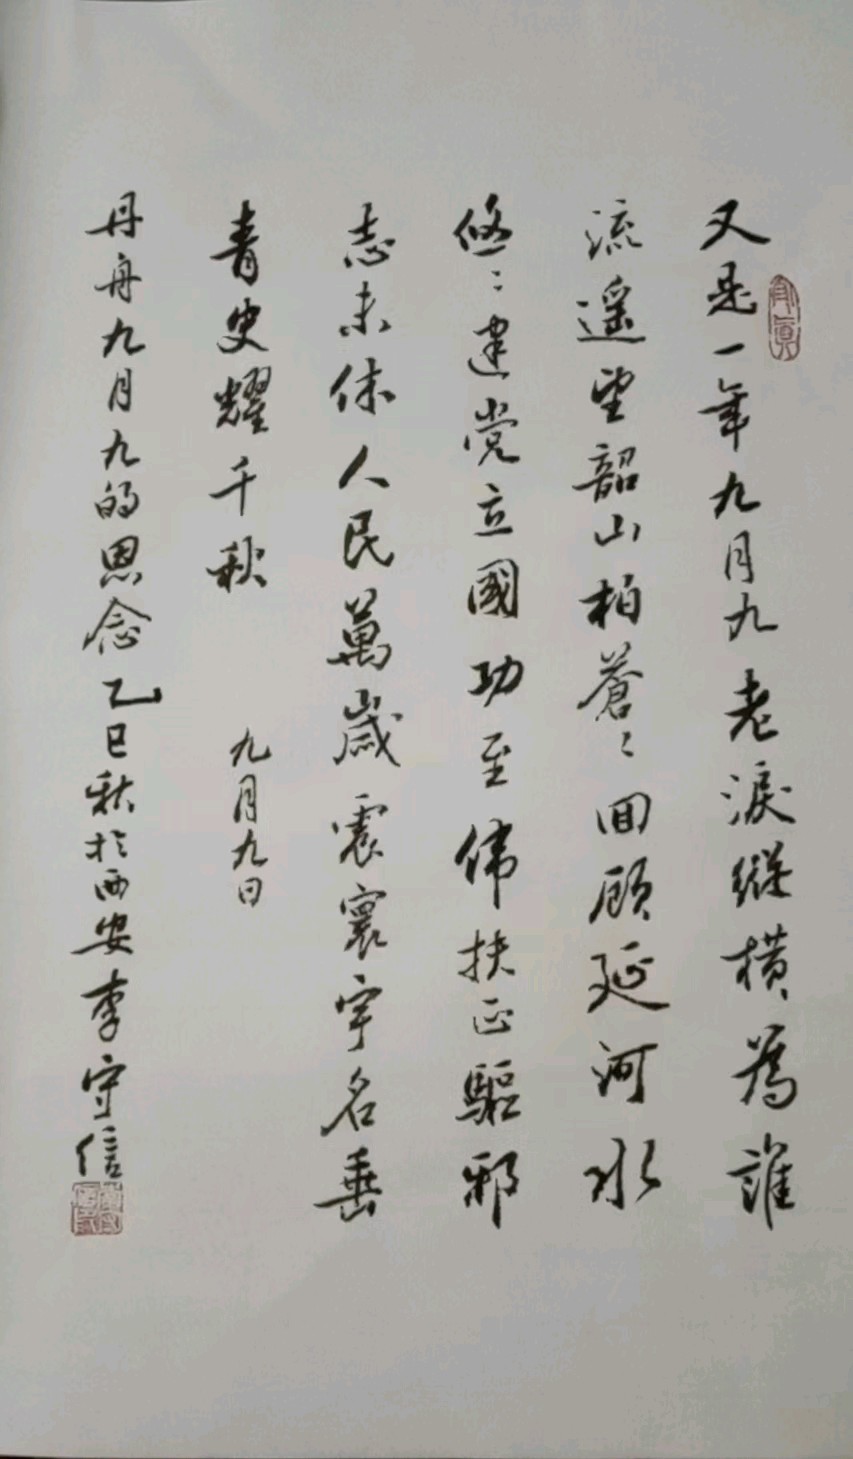 又是一年九月九老淚縱橫為誰
流遥望韶山柏蒼〻回顾延河水
悠〻建党立國功至伟扶正驅邪
志未休人民萬歲震寰宇名垂
青史耀千秋
九月九日
丹舟九月九的思念乙巳秋於西安李守信